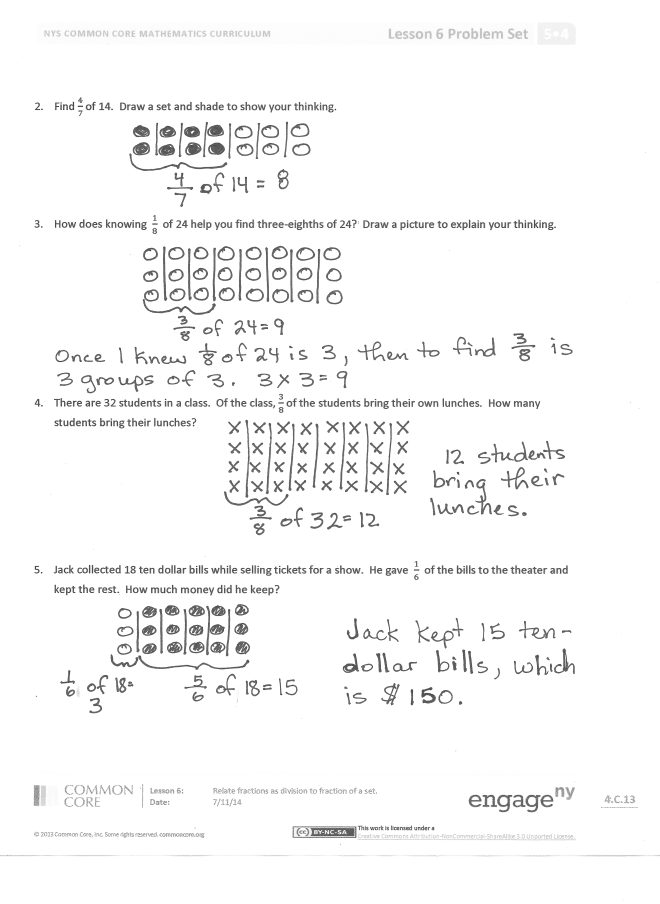 NYS COMMON CORE MATHEMATICS CURRICULUM Lesson 6 Problem Set 5•4
2. Find 4/7 of 14. Draw a set and shade to show your thinking.
4/7 of 14 = 8
3. How does knowing 1/8 of 24 help you find three-eighths of 24? Draw a picture to explain your thinking.
3/8 of 24=9
Once I knew 1/8 of 24 is 3, then to find 3/8 is
3 groups of 3. 3x3=9
4. There are 32 students in a class. Of the class, 3/8 of the students bring their own lunches. How many
students bring their lunches?
3/8 of 32=12
12 students
bring their
lunches.
5. Jack collected 18 ten dollar bills while selling tickets for a show. He gave 1/6 of the bills to the theater and
kept the rest. How much money did he keep?
1/6 of 18=
3
5/6 of 18=15
Jack kept 15 ten-
dollar bills, which
is $150.
COMMON
CORE
Lesson 6: Relate fractions as division to fraction of a set.
Date: 7/11/14
engageny
4.C.13
© 2013 Common Core, Inc. Some rights reserved. commoncore.org
CC BY-NC-SA
This work is licensed under a
Creative Commons Attribution-NonCommercial-ShareAlike 3.0 Unported License.